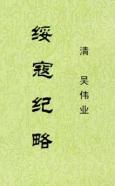 清 吴伟业
绥寇纪略